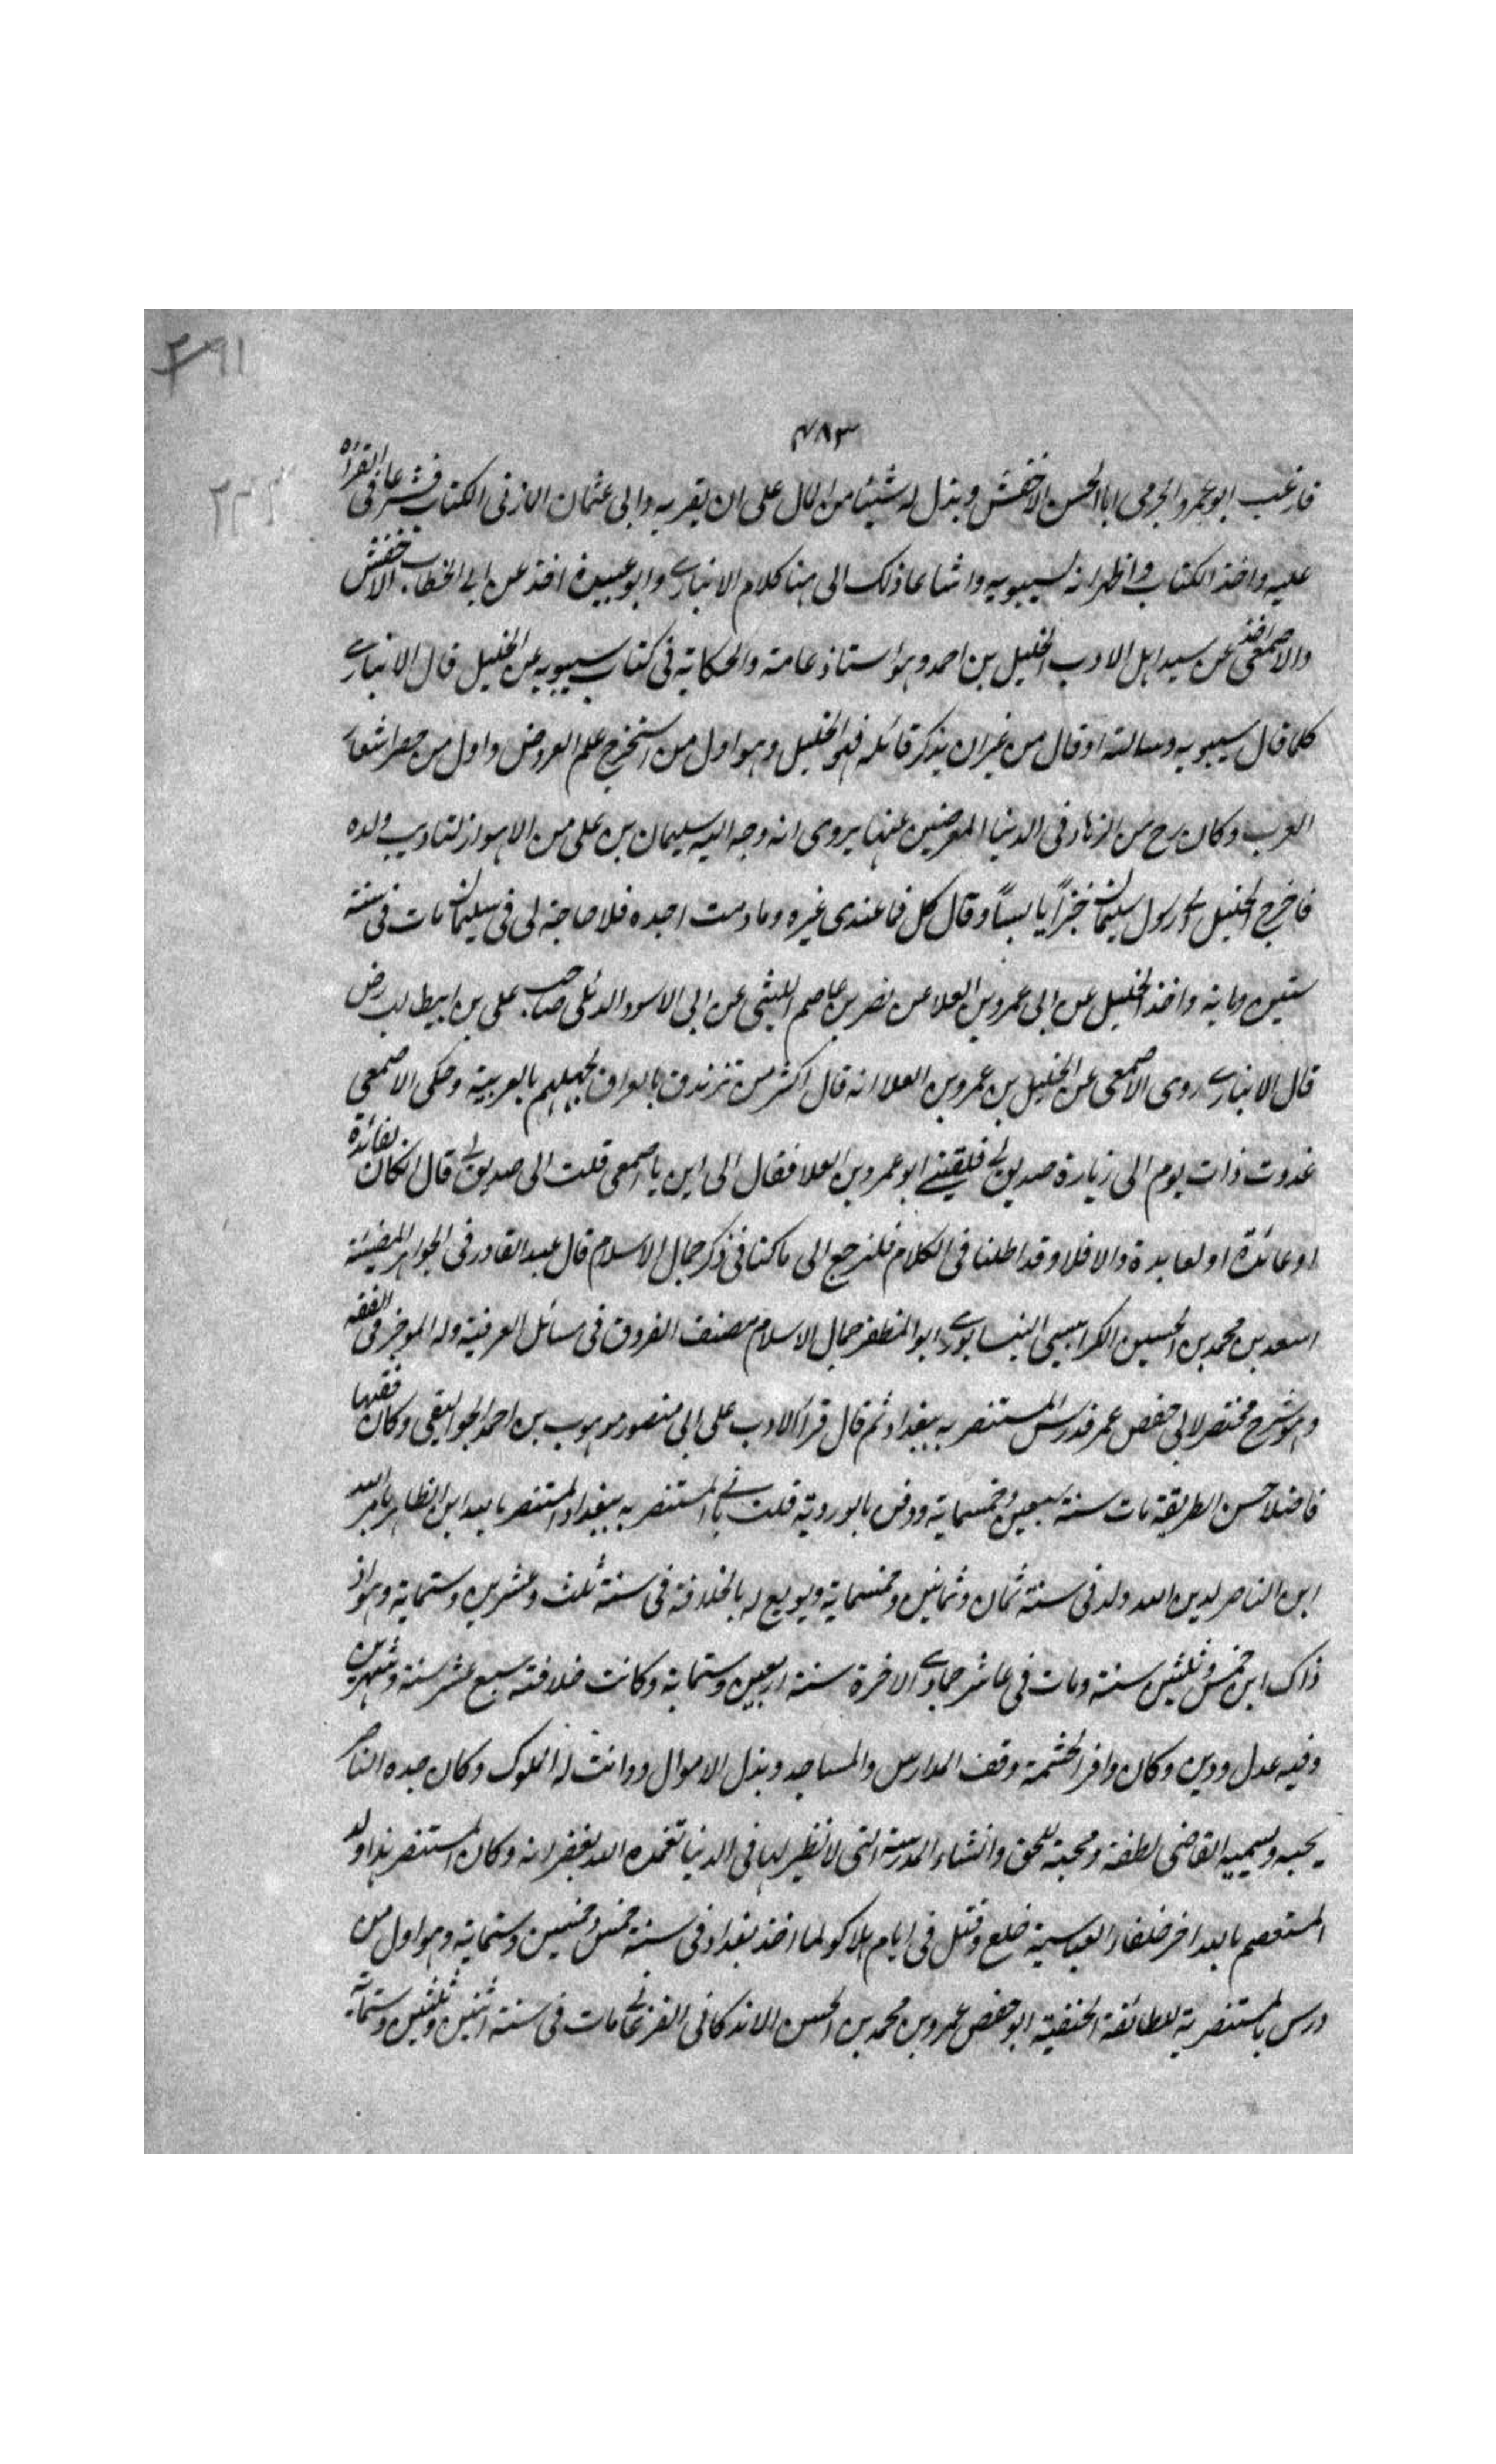 ٢٩١
٤٨٣
٢٣٢
فارغب ابو عمرو الجرمى ابا الحسن الاخفش وبذل له شيئا من المال على ان يقربه وابى عثمان المازنى الكتاب فشرعا فى القراة
عليه واخذ الكتاب واظهر انه لسيبويه واشاعا ذلك الى هنا كلام الانبارى وابو عبيدة اخذ عن ابى الخطاب الاخفش
والاصمعى اخذ عن سيد اهل الادب الخليل بن احمد وهو استاذ عامة والحكاية فى كتاب سيبويه عن الخليل قال الانبارى
كلما قال سيبويه وسالته او قال من غير ان يذكر قائله فهو الخليل وهو اول من استخرج علم العروض واول من حصر اشعار
العرب وكان رح من الزهاد فى الدنيا المعرضين عنها يروى انه وجه اليه سليمان بن على من الاهواز لتاديب ولده
فاخرج الخليل الى رسول سليمان خبزاً يابساً وقال كل فما عندى غيره وما دمت اجده فلا حاجة لى فى سليمان مات فى سنة
ستين وماية واخذ الخليل عن ابى عمرو بن العلا عن نصر بن عاصم الليثى عن ابى الاسود الدئلى صاحب على بن ابيطالب رض
قال الانبارى روى الاصمعى عن الخليل بن عمرو بن العلا انه قال اكثر من تزندق بالعراق لجهلهم بالعربية وحكى الاصمعى
غدوت ذات يوم الى زيارة صديق لى فلقينى ابو عمرو بن العلا فقال الى اين يا اصمعى قلت الى صديق لى قال انكان لفائدة
او عائدة او لعايدة والا فلا وقد اطلنا فى الكلام فلنرجع الى ما كنا فى ذكر جمال الاسلام قال عبد القادر فى الجواهر المضيئة
اسعد بن محمد بن الحسين الكرابيسى النيسابورى ابو المظفر جمال الاسلام مصنف الفروق فى مسائل الفرقية وله الموجز فى الفقه
وهو شرح مختصر لابى حفص عمر مدرس المستنصرية ببغداد ثم قال قرأ الادب على ابى منصور موهوب بن احمد الجواليقى وكان فقيها
فاضلا حسن الطريقة مات سنة سبعين وخمسماية ودفن بالوردية قلت بانى المستنصرية ببغداد المستنصر بالله ابن الظاهر بامر الله
ابن الناصر لدين الله ولد فى سنة ثمان وثمانين وخمسماية وبويع له بالخلافة فى سنة ثلث وعشرين وستماية وهو اذ
ذاك ابن خمس وثلثين سنة ومات فى عاشر جمادى الاخرة سنة اربعين وستماية وكانت خلافته سبع عشر سنة وشهرين
وفيه عدل ودين وكان وافر الحشمة وقف المدارس والمساجد وبذل الاموال ودانت له الملوك وكان جده الناصر
يحبه ويسميه القاضى لطفه ومحبة للحق وانشاء المدرسة التى لا نظير لها فى الدنيا تغمده الله بغفرانه وكان المستنصر هذا ولد
المستعصم بالله اخر خلفاء العباسية خلع وقتل فى ايام هلاكو لما اخذ بغداد فى سنة خمس وخمسين وستماية وهو اول من
درس بالمستنصرية للطائفة الحنفية ابو حفص عمرو بن محمد بن الحسين الاندكانى الفرغانى مات فى سنة اثنين وثلثين وستماية